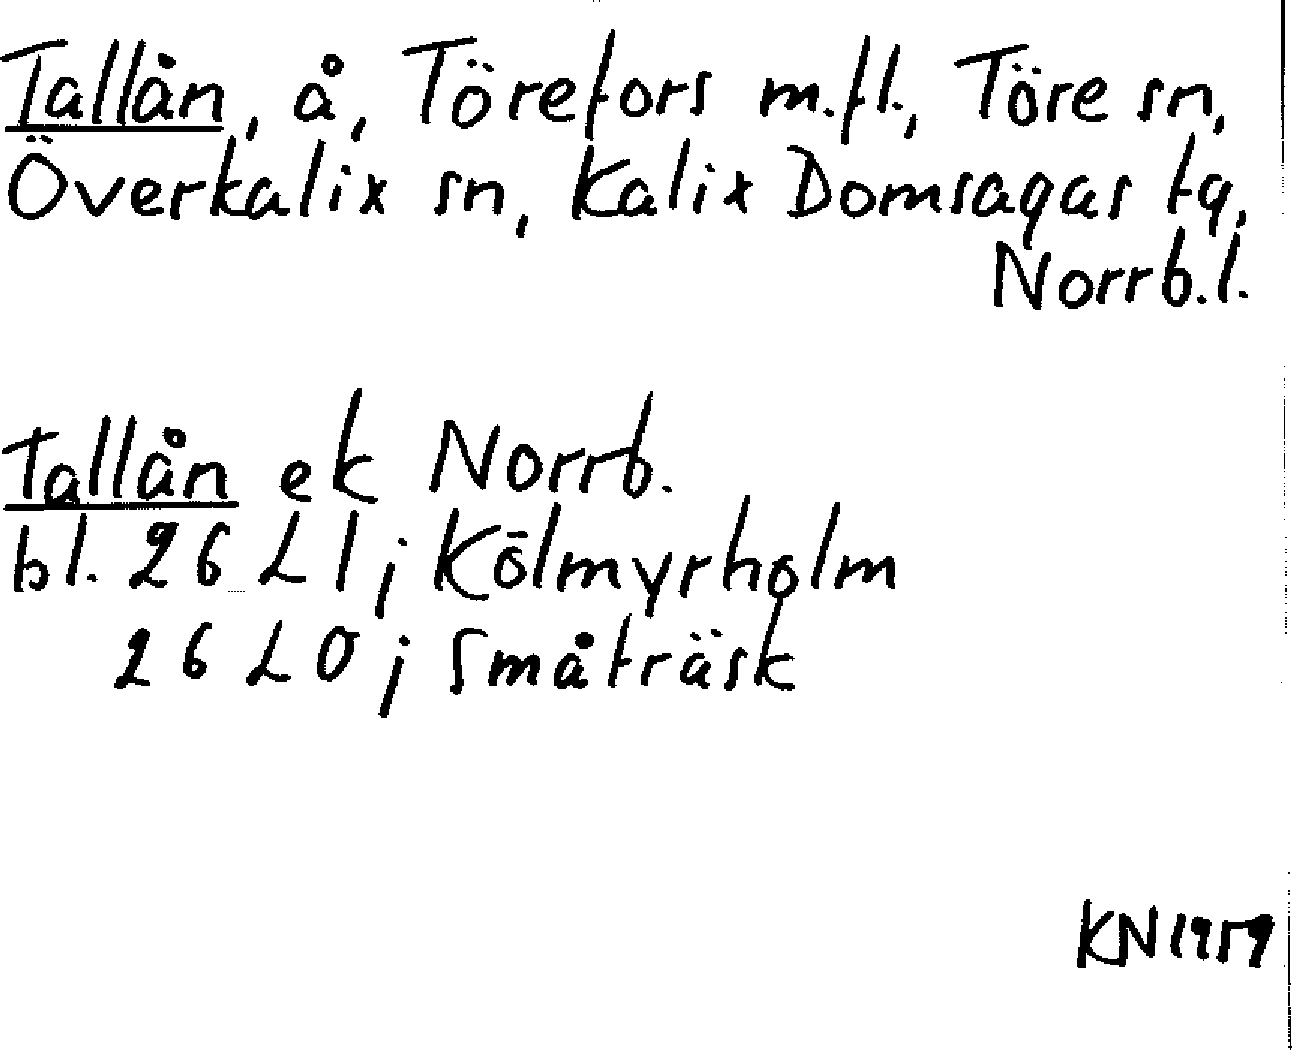 Tallån, å, Törefors m.fl., Töre sn,
Överkalix sn, Kalix Domsagas tg,
Norrb.l.
Tallån ek Norrb.
bl. 26 L 1; Kölmyrholm
26 L 0; Småträsk
KN 1959